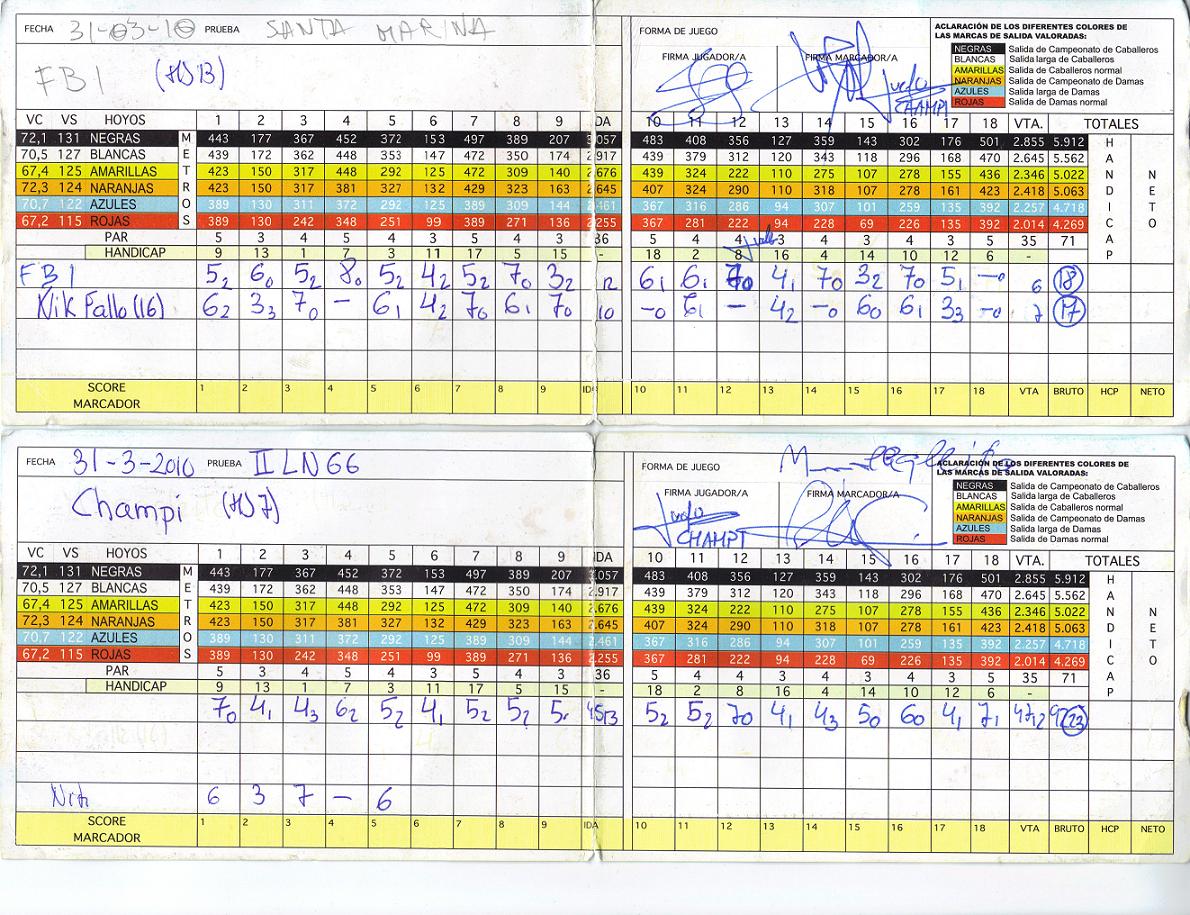 FECHA 31-03-10 PRUEBA SANTA MARINA
FORMA DE JUEGO
ACLARACIÓN DE LOS DIFERENTES COLORES DE
LAS MARCAS DE SALIDA VALORADAS:
FB1 (HJ13)
FIRMA JUGADOR/A FIRMA MARCADOR/A
CHAMPI
NEGRAS Salida de Campeonato de Caballeros
BLANCAS Salida larga de Caballeros
AMARILLAS Salida de Caballeros normal
NARANJAS Salida de Campeonato de Damas
AZULES Salida larga de Damas
ROJAS Salida de Damas normal
VC VS HOYOS 1 2 3 4 5 6 7 8 9 IDA 10 11 12 13 14 15 16 17 18 VTA. TOTALES
72,1 131 NEGRAS 443 177 367 452 372 153 497 389 207 3.057 483 408 356 127 359 143 302 176 501 2.855 5.912
70,5 127 BLANCAS 439 172 362 448 353 147 472 350 174 2.917 439 379 312 120 343 118 296 168 470 2.645 5.562
67,4 125 AMARILLAS 423 150 317 448 292 125 472 309 140 2.676 439 324 222 110 275 107 278 155 436 2.346 5.022
72,3 124 NARANJAS 423 150 317 381 327 132 429 323 163 2.645 407 324 290 110 318 107 278 161 423 2.418 5.063
70,7 122 AZULES 389 130 311 372 292 125 389 309 144 2.461 367 316 286 94 307 101 259 135 392 2.257 4.718
67,2 115 ROJAS 389 130 242 348 251 99 389 271 136 2.255 367 281 222 94 228 69 226 135 392 2.014 4.269
METROS
HANDICAP
NETO
PAR 5 3 4 5 4 3 5 4 3 36 5 4 4 3 4 3 4 3 5 35 71
HANDICAP 9 13 1 7 3 11 17 5 15 - 18 2 8 16 4 14 10 12 6 -
FB1 5 2 6 0 5 2 8 0 5 2 4 2 5 2 7 0 3 2 12 6 1 6 1 7 0 4 1 7 0 3 2 7 0 5 1 - 0 6 18
Nik Fallo (16) 6 2 3 3 7 0 - 6 1 4 2 7 0 6 1 7 0 10 - 0 6 1 - 4 2 - 0 6 0 6 1 3 3 - 0 7 17
SCORE MARCADOR 1 2 3 4 5 6 7 8 9 IDA 10 11 12 13 14 15 16 17 18 VTA BRUTO HCP NETO
FECHA 31-3-2010 PRUEBA II LN66
FORMA DE JUEGO
ACLARACIÓN DE LOS DIFERENTES COLORES DE
LAS MARCAS DE SALIDA VALORADAS:
Champi (HJ7)
FIRMA JUGADOR/A FIRMA MARCADOR/A
CHAMPI
NEGRAS Salida de Campeonato de Caballeros
BLANCAS Salida larga de Caballeros
AMARILLAS Salida de Caballeros normal
NARANJAS Salida de Campeonato de Damas
AZULES Salida larga de Damas
ROJAS Salida de Damas normal
VC VS HOYOS 1 2 3 4 5 6 7 8 9 IDA 10 11 12 13 14 15 16 17 18 VTA. TOTALES
72,1 131 NEGRAS 443 177 367 452 372 153 497 389 207 3.057 483 408 356 127 359 143 302 176 501 2.855 5.912
70,5 127 BLANCAS 439 172 362 448 353 147 472 350 174 2.917 439 379 312 120 343 118 296 168 470 2.645 5.562
67,4 125 AMARILLAS 423 150 317 448 292 125 472 309 140 2.676 439 324 222 110 275 107 278 155 436 2.346 5.022
72,3 124 NARANJAS 423 150 317 381 327 132 429 323 163 2.645 407 324 290 110 318 107 278 161 423 2.418 5.063
70,7 122 AZULES 389 130 311 372 292 125 389 309 144 2.461 367 316 286 94 307 101 259 135 392 2.257 4.718
67,2 115 ROJAS 389 130 242 348 251 99 389 271 136 2.255 367 281 222 94 228 69 226 135 392 2.014 4.269
METROS
HANDICAP
NETO
PAR 5 3 4 5 4 3 5 4 3 36 5 4 4 3 4 3 4 3 5 35 71
HANDICAP 9 13 1 7 3 11 17 5 15 - 18 2 8 16 4 14 10 12 6 -
7 0 4 1 4 3 6 2 5 2 4 1 5 2 5 2 5 45 13 5 2 5 2 7 0 4 1 4 3 5 0 6 0 4 1 7 1 47 12 23
6 3 7 - 6
SCORE MARCADOR 1 2 3 4 5 6 7 8 9 IDA 10 11 12 13 14 15 16 17 18 VTA BRUTO HCP NETO